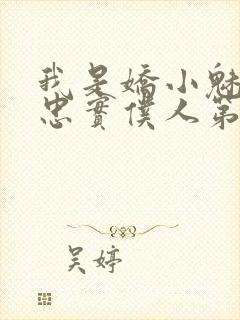 我是嬌小魅
忠實僕人第
吴婷